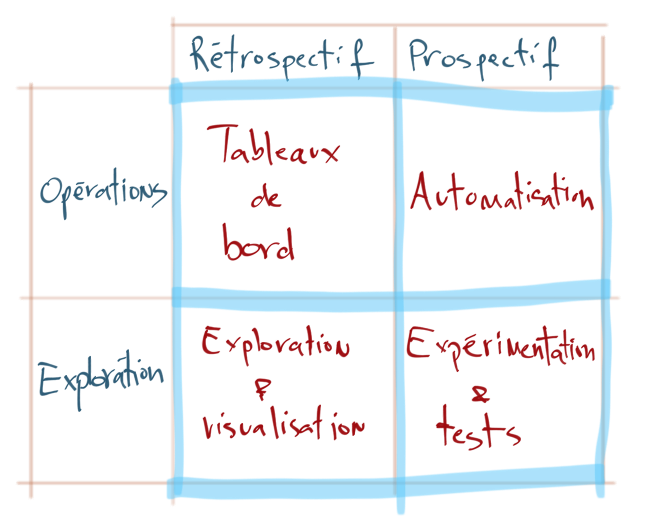 Rétrospectif Prospectif
Opérations
Tableaux
de
bord
Automatisation
Exploration
Exploration
&
visualisation
Expérimentation
&
tests